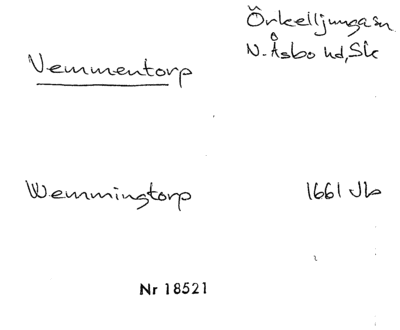 Örkelljunga sn
N. Åsbo hd, Sk
Vemmentorp
Wemmingtorp 1661 Jb
Nr 18521